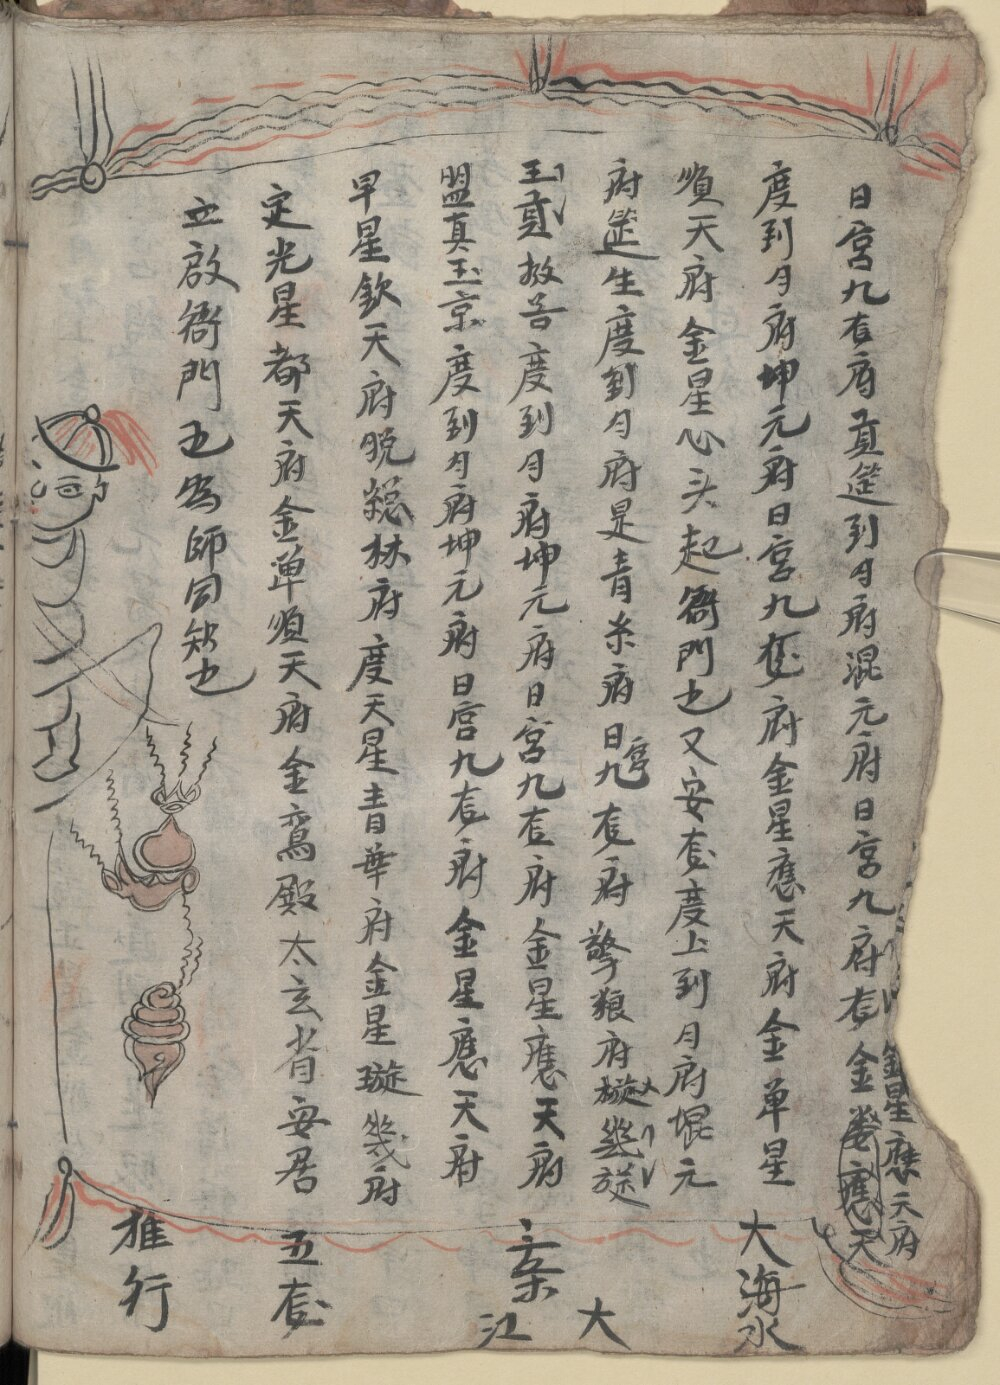 日宮九府真到月府混元府日宮九府金
金星應天府
度到月府坤元府日宮九府金星應天府金单星
順天府金星心头起衙門也又安套度上到月府混元
府生度到月府是青糸府日宮九府擎狼府
玉真救苦度到月府坤元府日宮九府金星應天府
盟真玉京度到月府坤元府日宮九府金星應天府
早星欽天府晚林府度天星青華府金星璇幾府
定光星都天府金单順天府金鸾殿太玄省安居
立啟衙門也為師同知也
大海水
大江
五套
推行